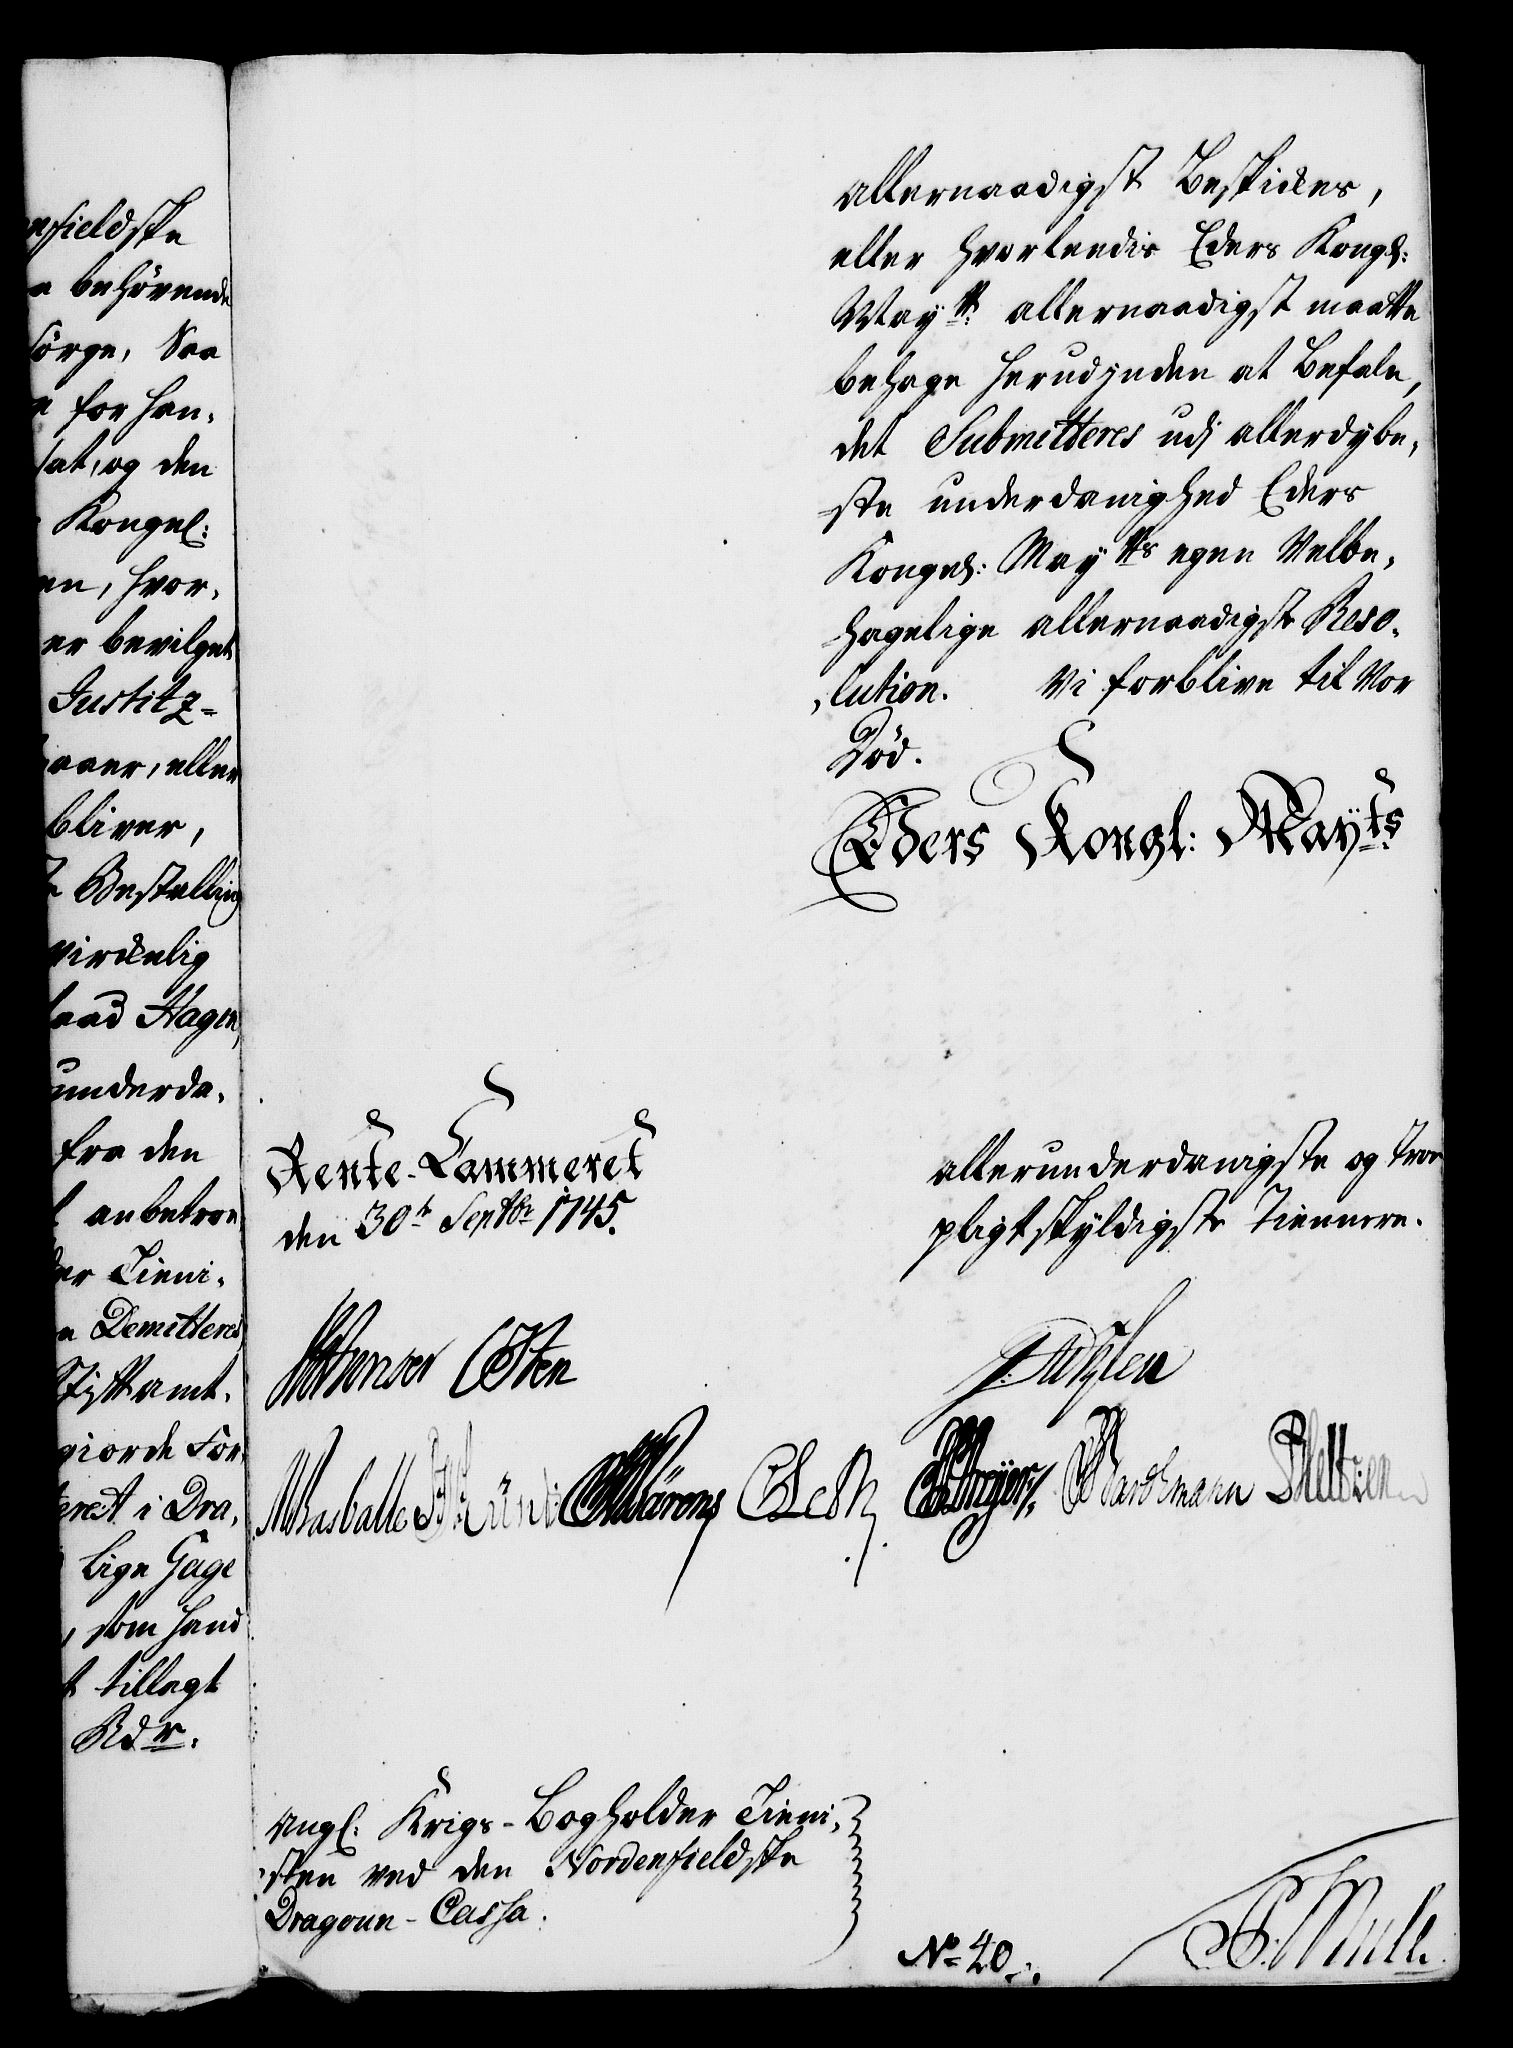 nfieldske
behörende
sörge, Saa
for han,
at, og den
Kongel:
en, hvor,
er bevilget
Justitz-
aaer, eller
bliver,
Bestalling
virckelig
aad Hagen,
underda,
fra den
anbetroe
der Tieni,
Demitteres
Stiftamt,
giorde For,
eret i Dra,
lige Gage
, som hand
t tillagt
Rdr.
allernaadigst Beskickes,
eller hvorleedis Eders Kongl:
Mayts: allernaadigst maatte
behage herudjnden at Befale,
det Submitteres udj allerdybe,
ste underdanighed Eders
Kongel: Mayts egen Velbe,
hagelige allernaadigste Reso,
,lution. Vi forblive til Vor
Död.
Eders Kongl: Mayts
Rente-Cammeret
den 30te Septbr 1745.
allerunderdanigste og troe
pligtskyldigste Tiennere.
Osten
MBasballe
CLeth
Bardtmann
Angl: Krigs-Bogholder Tieni,
,sten ved den Nordenfieldske
Dragoun-Cassa.
No 40.